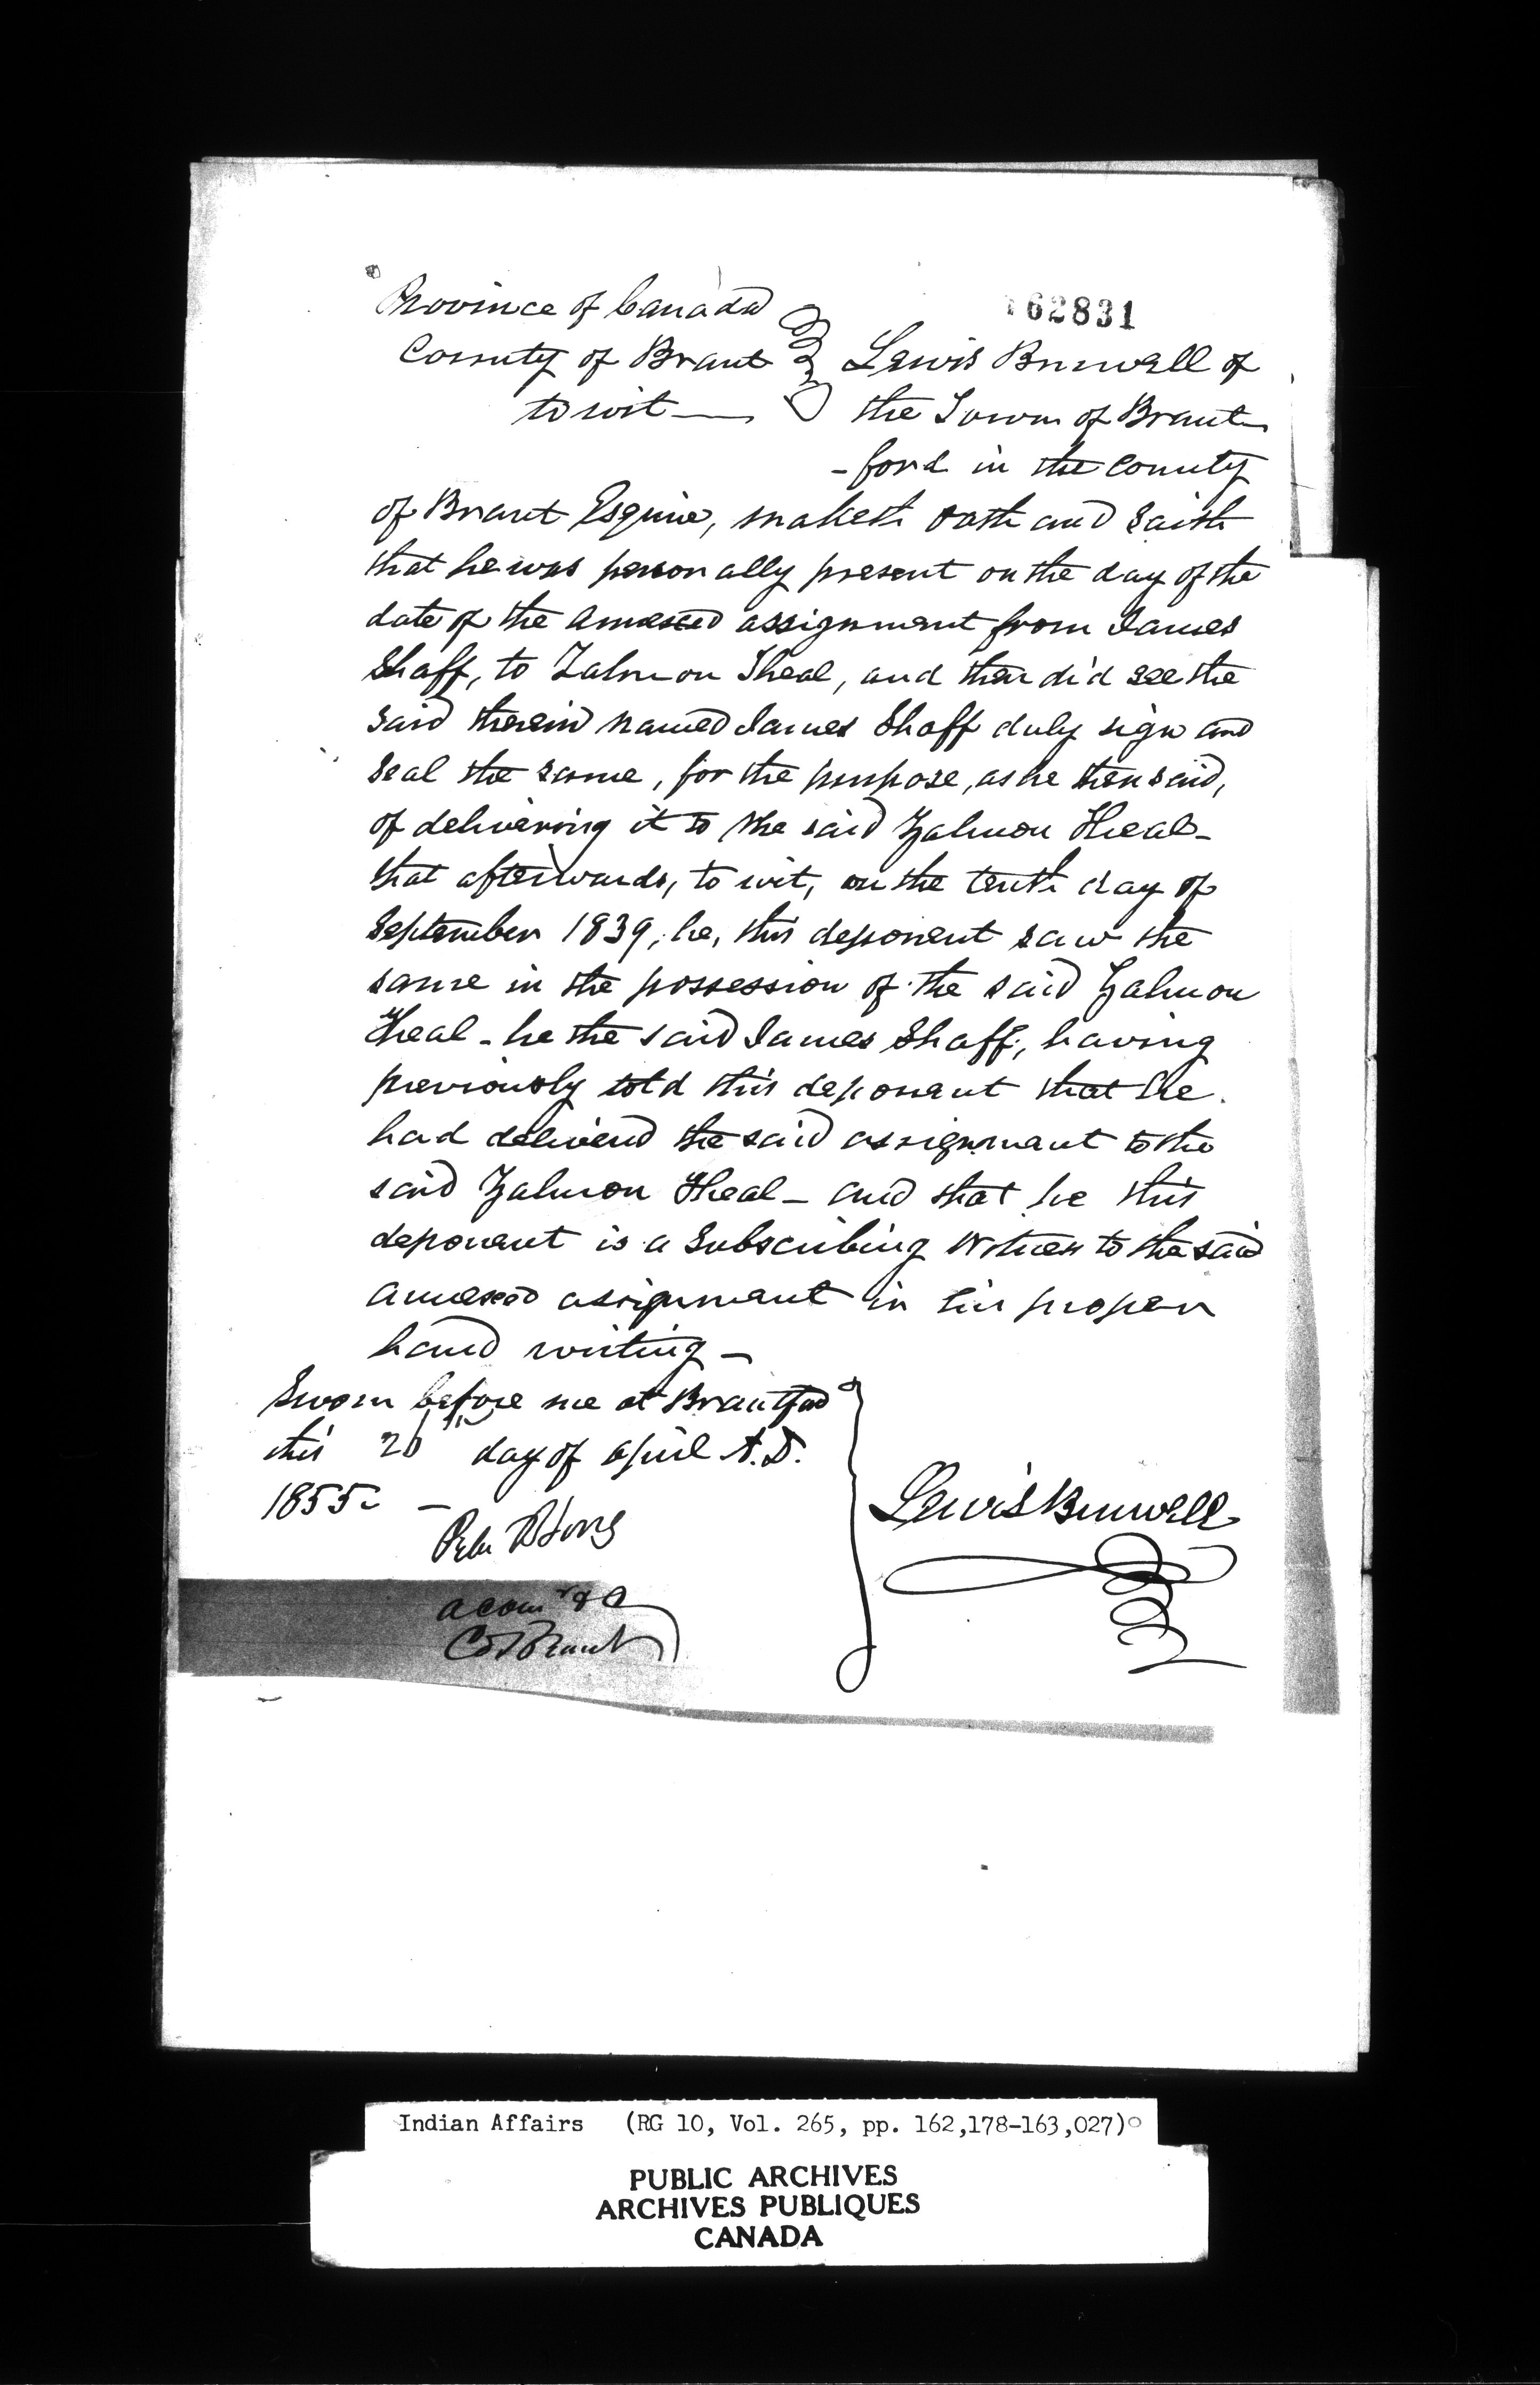 Province of Canada
162831
County of Brant } Lewis Burwell of
to wit — the Town of Brant
-ford in the County
of Brant Esquire, maketh oath and saith
that he was personally present on the day of the
date of the annexed assignment from James
Shaff, to Zalmon Theal, and then did see the
said therein named James Shaff duly sign and
seal the same, for the purpose, as he then said,
of delivering it to the said Zalmon Theal -
that afterwards, to wit, on the tenth day of
September 1839, he, this deponent saw the
same in the possession of the said Zalmon
Theal - he the said James Shaff, having
previously told this deponent that he
had delivered the said assignment to the
said Zalmon Theal - and that he this
deponent is a Subscribing Witness to the said
annexed assignment in his proper
hand writing -
Sworn before me at Brantford
this 26th day of April A.D.
1855 -
Lewis Burwell
a Comr &c
Co Brant
Indian Affairs (RG 10, Vol. 265, pp. 162,178-163,027)
PUBLIC ARCHIVES
ARCHIVES PUBLIQUES
CANADA